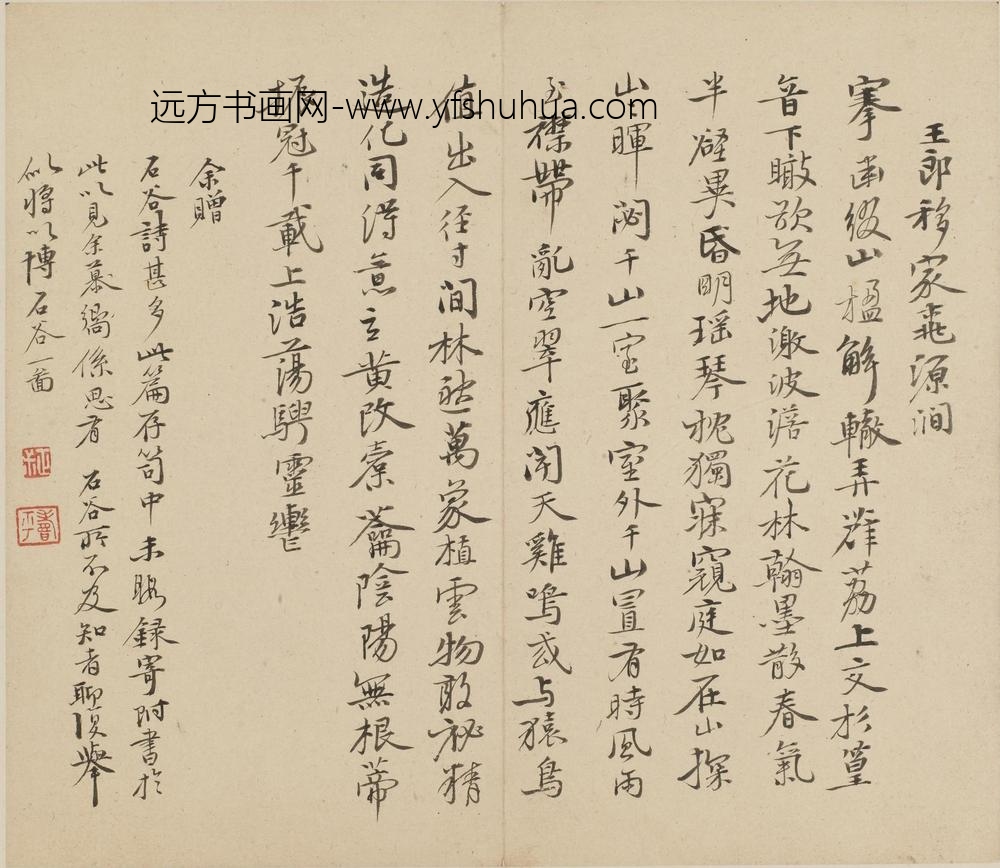 远方书画网-www.yfshuhua.com
王郎移家源澗
搴幽綴山楹解轍弄群荔上交杉篁
音下瞰欲無地激波落花林翰墨散春氣
半壁異昏明瑶琴枕獨寐窺庭如在山探
山暉閟千山一室聚室外千山置有時風雨
至襟帶亂空翠應聞天雞鳴或与猿鳥
值出入徑寸間林巒萬象植雲物敢祕精
造化同得意玄黄改橐籥陰陽無根蒂
振冠千載上浩蕩騁靈轡
余贈
石谷詩甚多此篇存笥中未暇録寄附書於
此以見余慕嚮係思有 石谷所不及知者聊復舉
似將以博石谷一畵